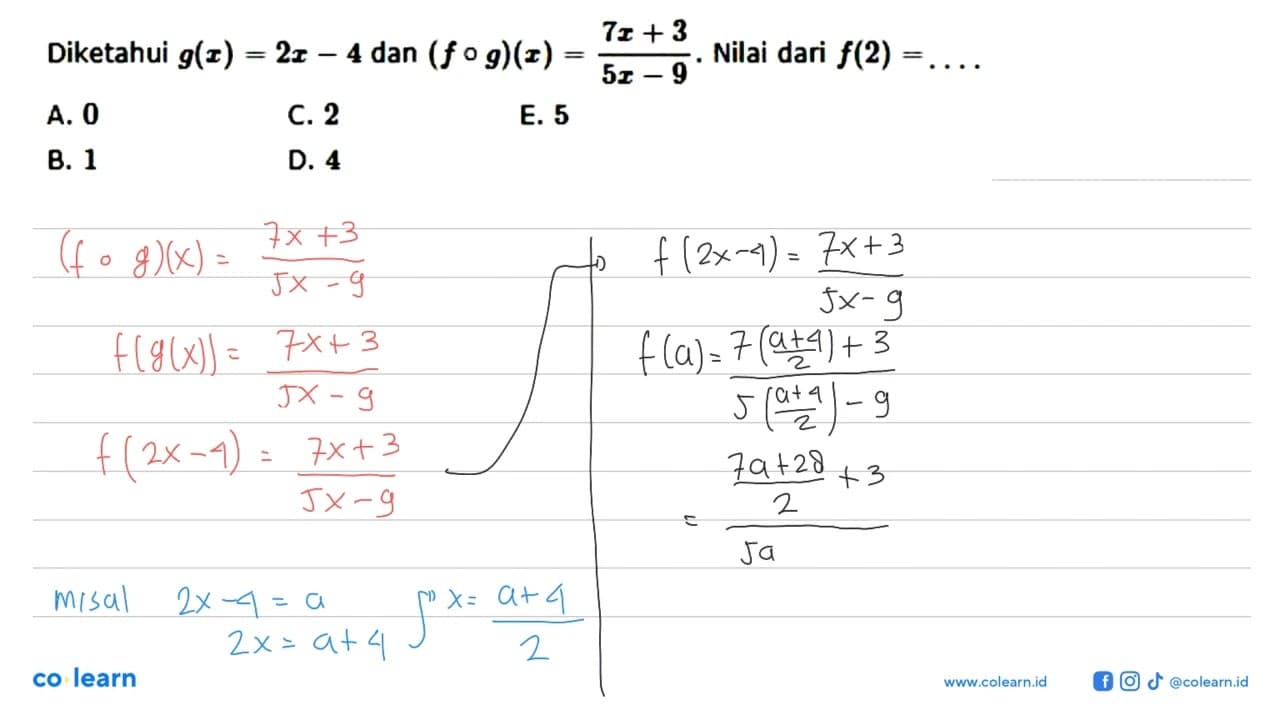 Diketahui g(x) = 2x − 4 dan (f ∘ g)(x) = (7x + 3)/(5x − 9). Nilai dari f(2) = ....
A. 0 C. 2 E. 5
B. 1 D. 4
(f ∘ g)(x) = (7x + 3)/(5x − 9)
f(g(x)) = (7x + 3)/(5x − 9)
f(2x − 4) = (7x + 3)/(5x − 9)
misal 2x − 4 = a
2x = a + 4
x = (a + 4)/2
f(2x − 4) = (7x + 3)/(5x − 9)
f(a) = (7((a + 4)/2) + 3)/(5((a + 4)/2) − 9)
= ((7a + 28)/2 + 3)/(5a
co learn
www.colearn.id
@colearn.id